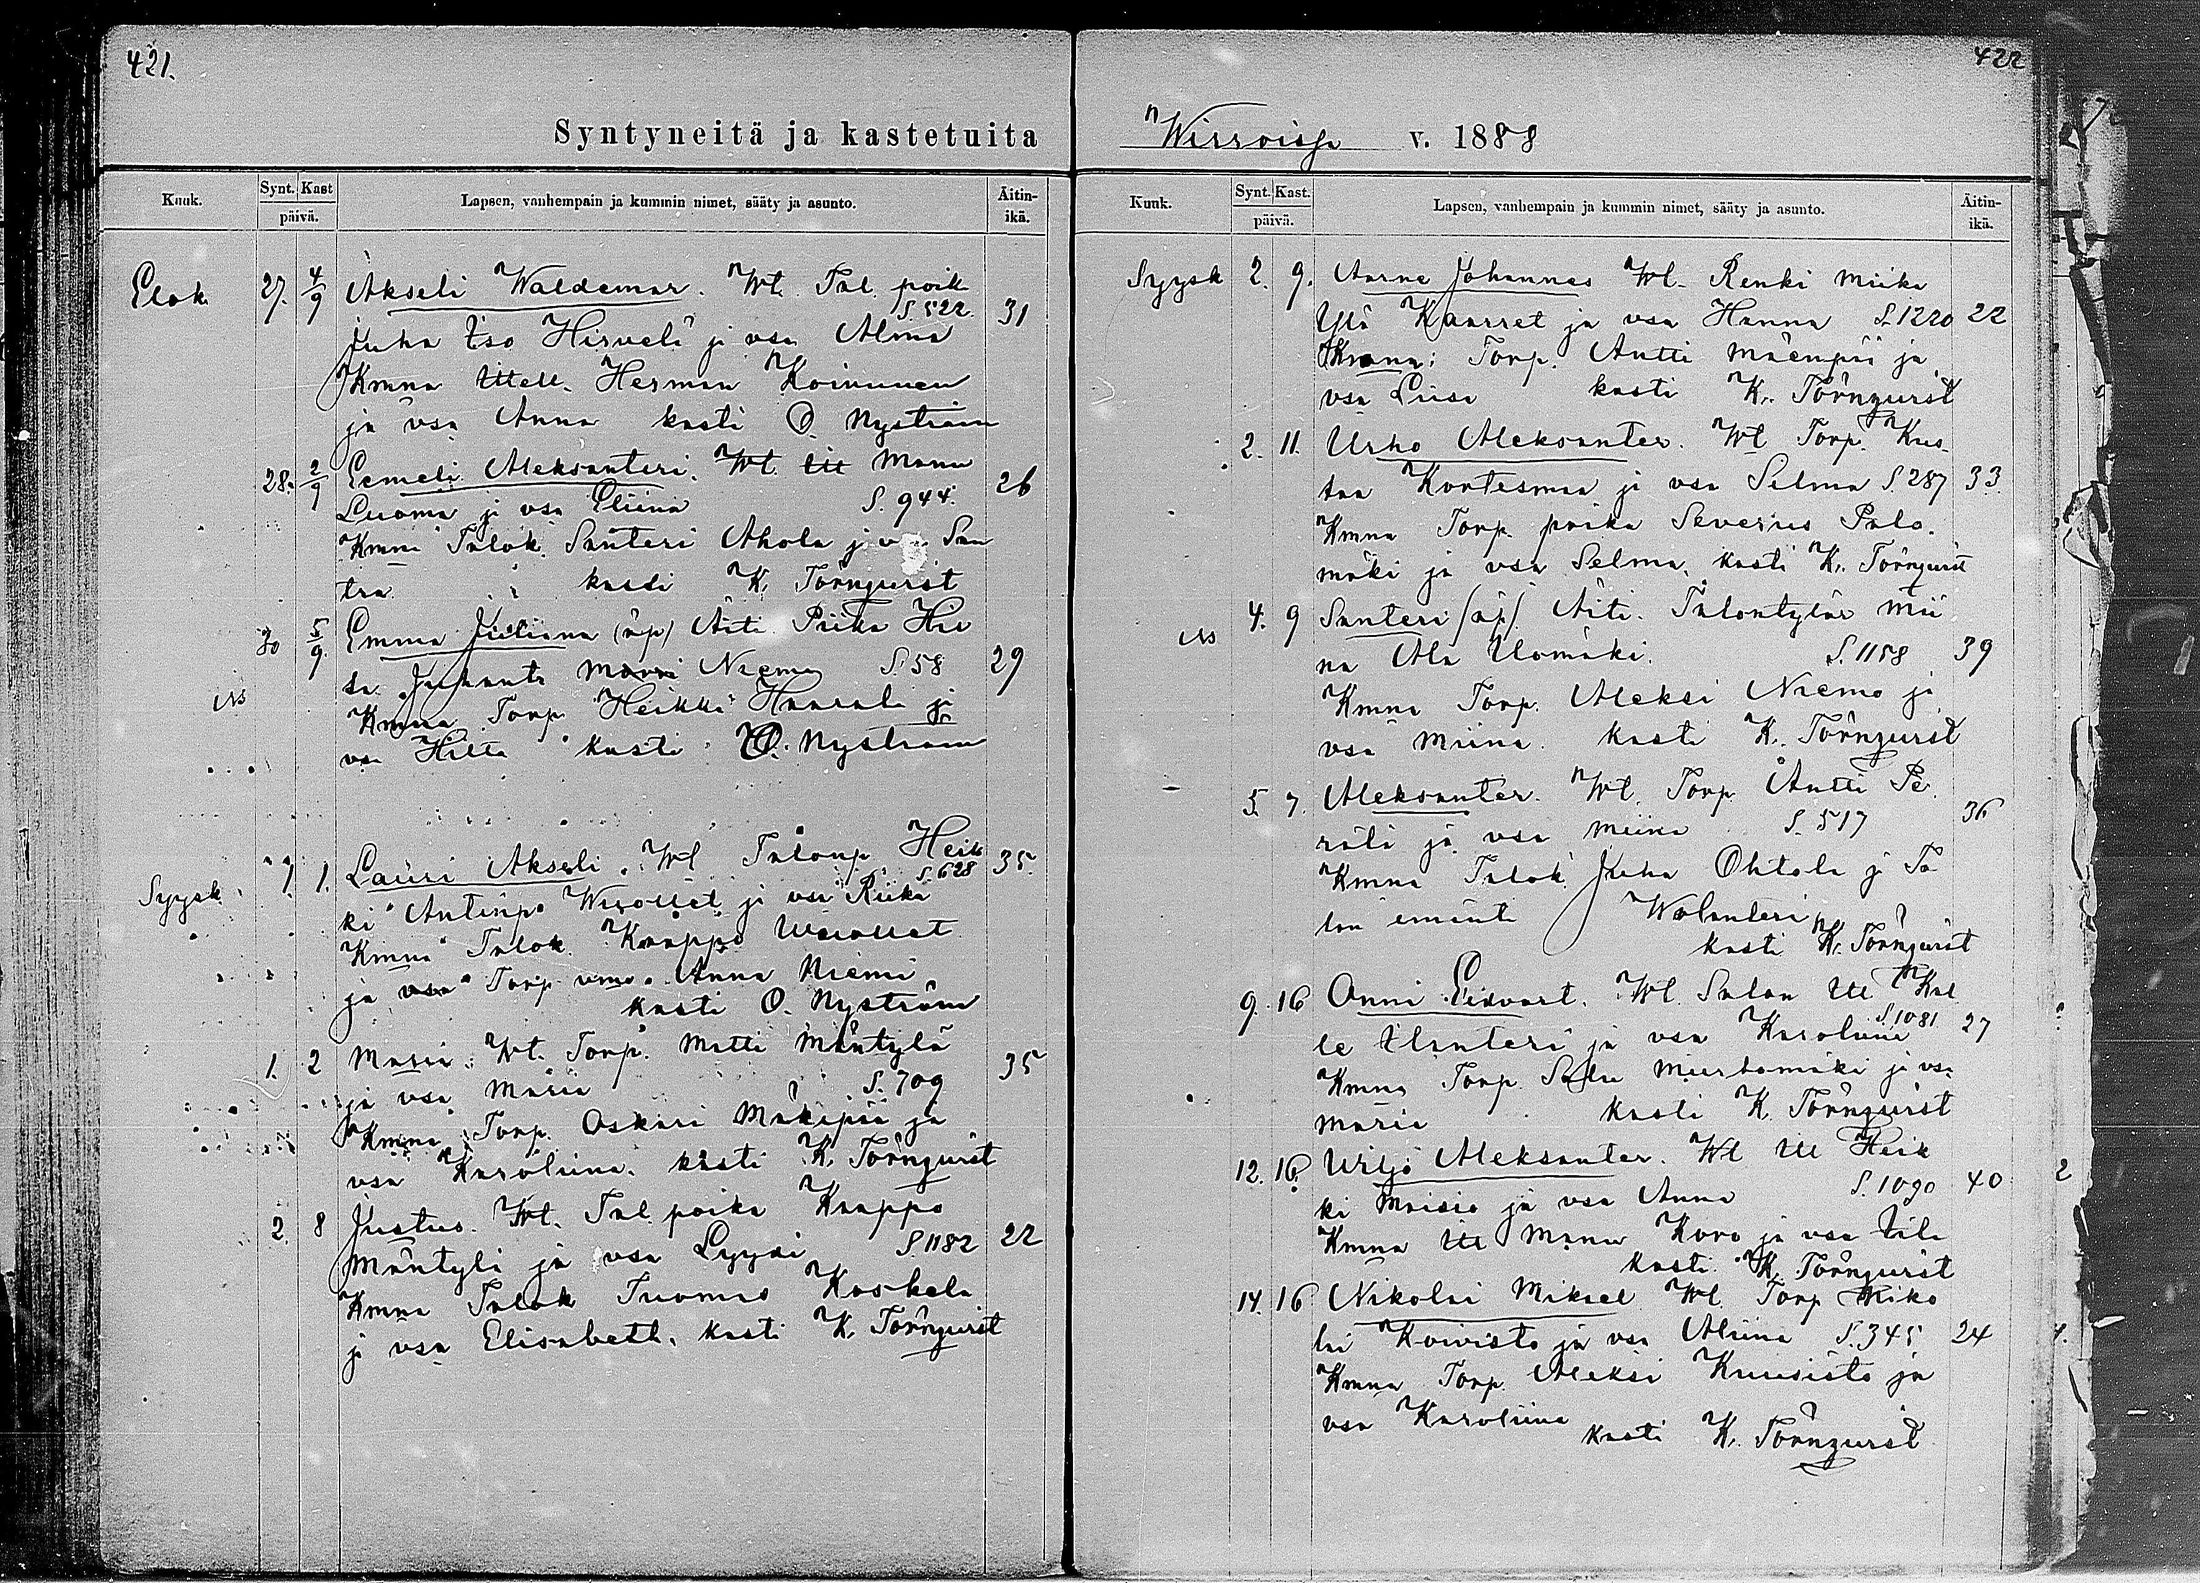 421.
Syntyneitä ja kastetuita
Kuuk. Synt. Kast päivä. Lapsen, vanhempain ja kummin nimet, sääty ja asunto. Äitin-ikä.
Elok. 27. 4/9 Akseli Waldemar. Wt. Tal. poik
S. 522. 31
Juha Iso Hirveli ja vsa Alma
Kmna Itsell. Herman Koivunen
ja vsa Anna kasti O. Nyström
28. 2/9 Eemeli Aleksanteri. Wt. Itt Manu 26
Luoma ja vsa Eliina S. 944.
Kmna Talok. Santeri Ahola ja San
tra. kasti K. Törnqvist
30 5/9. Emma Juliana (äp) Äiti Piika Hil
da Juhant. Niemi S. 58 29
Kmna Torp. Heikki Haarala ja
vsa Hilta kasti O. Nyström
Syysk. 1. 1. Lauri Akseli. Wt. Talonp. Heik 35.
S. 628
ki Antinpo Wirollet ja vsa Riika
Kmna Talok. Kaappo
ja vsa Torp. vmo. Anna Niemi
kasti O. Nyström
1. 2 Maria. Wt. Torp. Matti Mäntylä
ja vsa Maria S. 709 35
Kmna Torp. Oskari Mäkipää ja
vsa Karoliina. kasti K. Törnqvist
2. 8 Justus. Wt. Tal. poika Kaappo
Mäntylä ja vsa Lyydi S. 1182 22
Kmna Talok Tuomas Koskela
ja vsa Elisabeth. kasti K. Törnqvist
422
Wirroissa v. 1888
Kuuk. Synt. Kast. päivä. Lapsen, vanhempain ja kummin nimet, sääty ja asunto. Äitin-ikä.
Syysk 2. 9. Aarne Johannes Wt. Renki Miika
Ylä Kaarret ja vsa Hanna S. 1220 22
Kmna: Torp. Antti Mäenpää ja
vsa Liisa kasti K. Törnqvist
2. 11. Urho Aleksanter. Wt Torp. Kus-
taa Kortesmaa ja vsa Selma S. 287 33.
Kmna Torp. poika Severus Palo-
mäki ja vsa Selma. kasti K. Törnqvist
4. 9 Santeri (äp) Äiti. Talontytär Mii
na Ala Uomäki. S. 1158 39
Kmna Torp. Aleksi Niemo ja
vsa Miina. kasti K. Törnqvist
5. 7. Aleksanter. Wt. Torp Antti Pe
rälä ja vsa Miina S. 517 36
Kmna Talok. Juha Ohtola ja Ta
lon emänt Walanteri
kasti K. Törnqvist
9. 16 Onni Eidvart. Wt. Talon Itt Kal
S. 1081 27
le Ulanteri ja vsa Karoliina
Kmna Torp. Murtomäki ja vsa
Maria kasti K. Törnqvist
12. 16. Wiljo Aleksanter. Wt Itt Heik
ki Maisio ja vsa Anna S. 1090 40
Kmna Itt Manu Koro ja vsa Iita
kasti K. Törnqvist
14. 16 Nikolai Mikael Wt. Torp Niko
lai Koivisto ja vsa Miina S. 345 24
Kmna Torp. Aleksi Kuusisto ja
vsa Karoliina
kasti K. Törnqvist